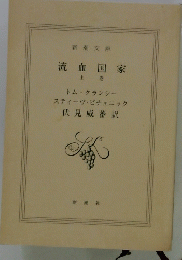 新潮文庫
流血国家
上巻
トム・クランシー
スティーヴ・ピチェニック
伏見威蕃訳
新潮社